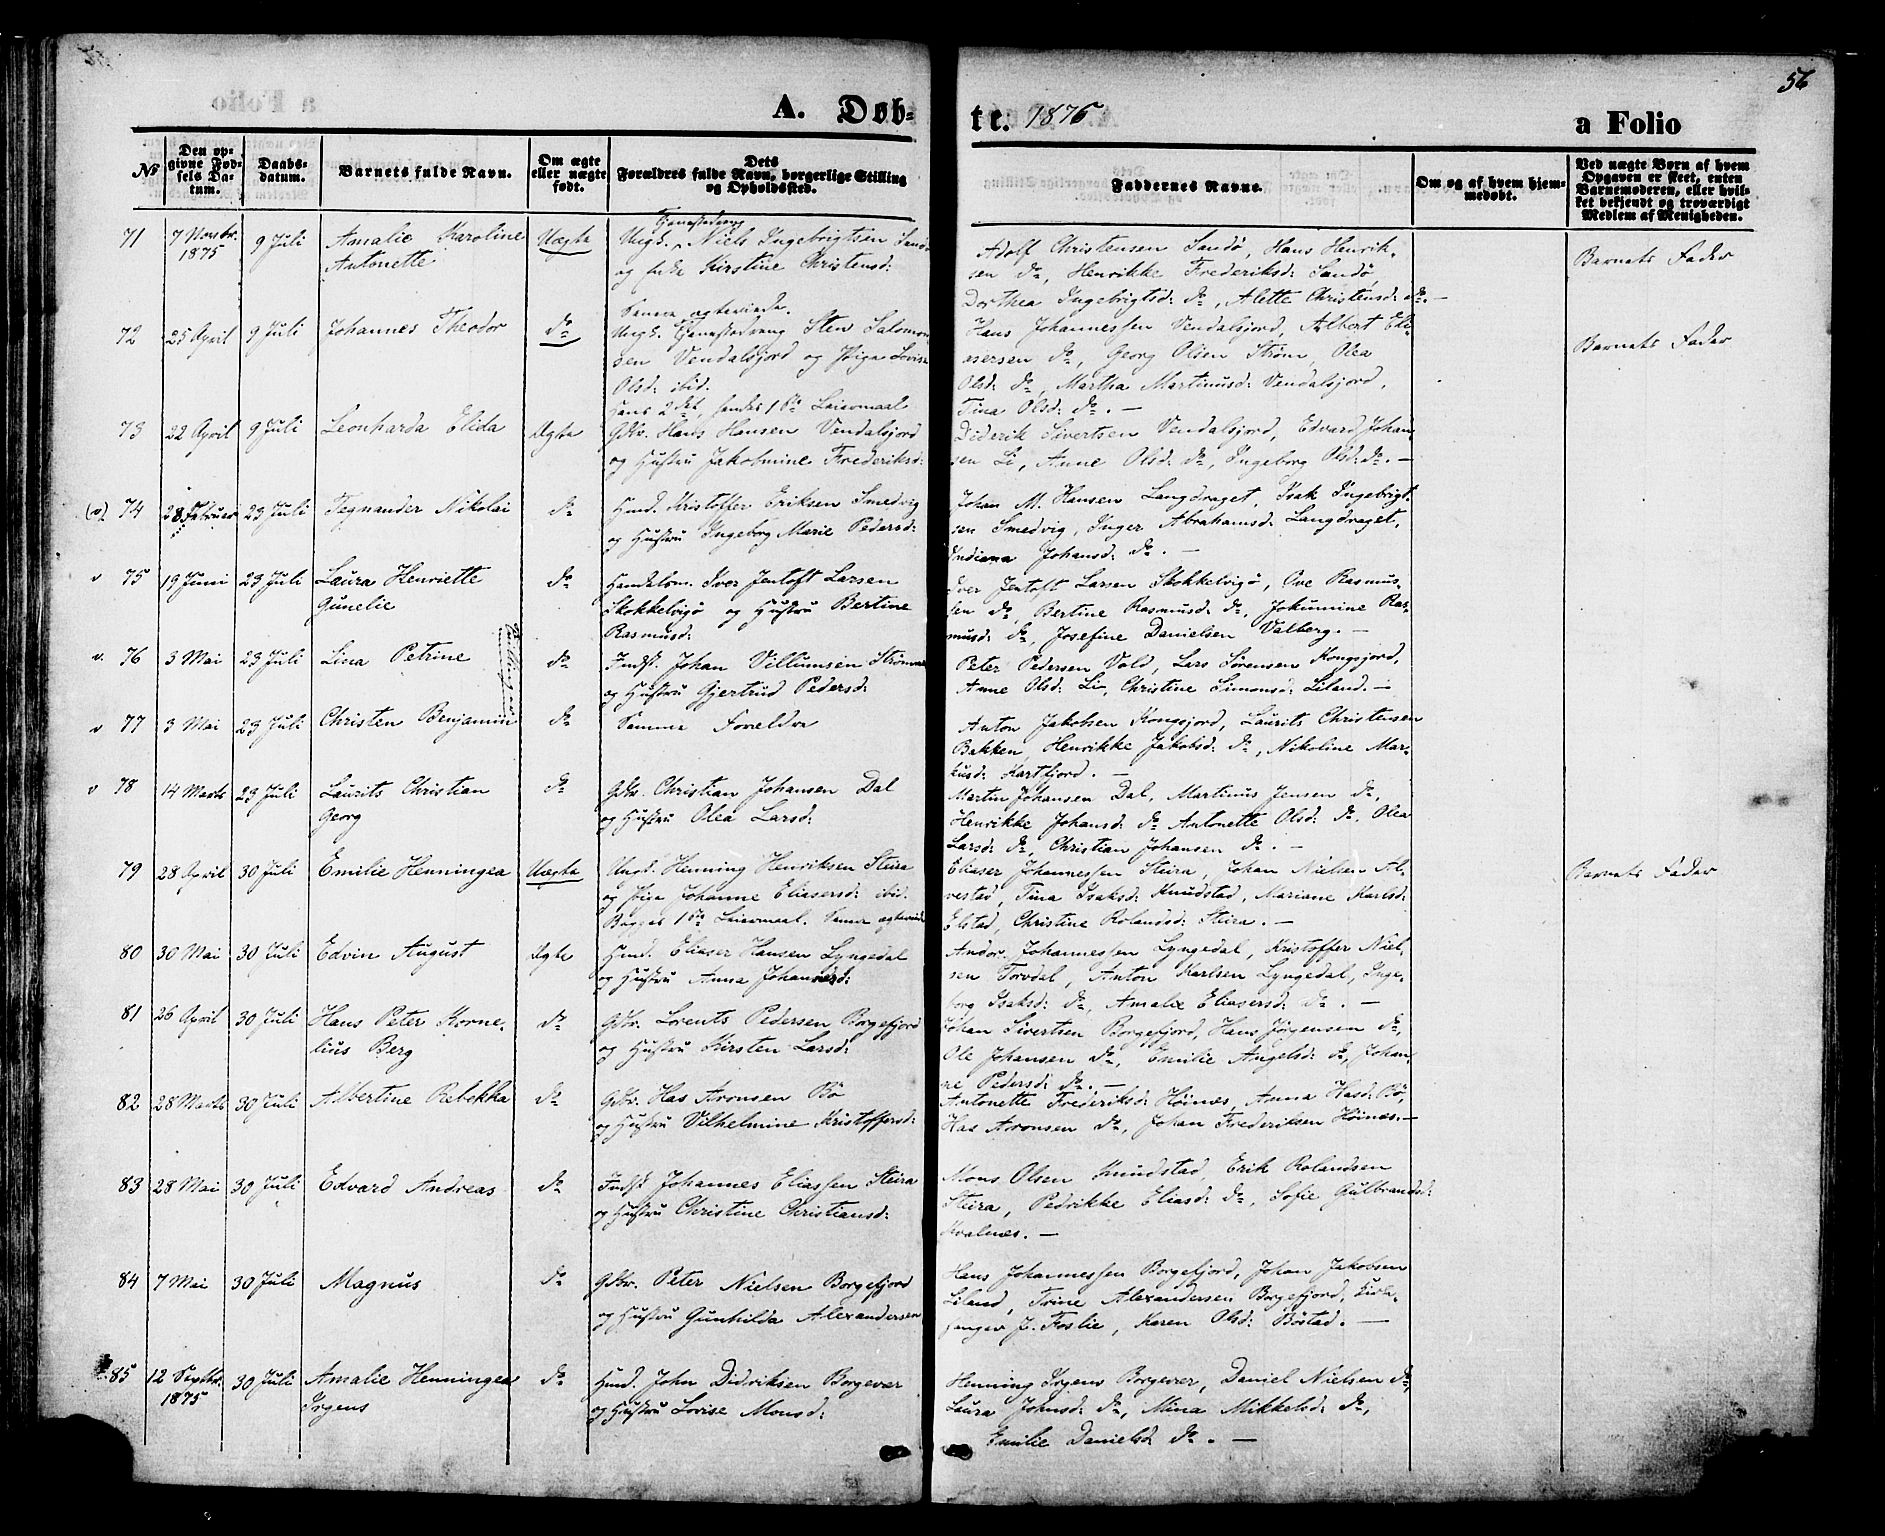 56
A. Døb-
te. 1876
a Folio
No
Den op-
givne Fød-
sels Da-
tum.
Daabs-
datum.
Barnets fulde Navn.
Om ægte
eller uægte
født.
Dets
Forældres fulde Navn, borgerlige Stilling
og Opholdssted.
Faddernes Navne.
Om og af hvem hjem-
medøbt.
Ved uægte Børn af hvem
Opgaven er skeet, enten
Barnemoderen, eller hvil-
ket bekjendt og troværdigt
Medlem af Menigheden.
71 7 Novbr. 1875 9 Juli Amalie Karoline Antonette Uægte
Ungk. Niels Ingebrigtsen Sandø
og Kirstine Christensd:
Samme agteviede.
Adolf Christensen Sandø, Hans Henrik-
sen do, Henrikke Frederiksd: Sandø,
Dorthea Ingebrigtsd: do, Alette Christensd: do. —
Barnets Fader
72 25 April 9 Juli Johannes Theodor do
Ungk. Sten Salomon-
sen Vendalsjord og Pige Lovise
Olsd: ibid.
Hans 2det, hendes 1ste Leiermaal
Hans Johannessen Vendalsjord, Albert Eli-
asersen do, Georg Olsen Strøm, Olea
Olsd: do, Martha Martinusd: Vendalsjord,
Tina Olsd: do. —
Barnets Fader
73 22 April 9 Juli Leonharda Elida Ægte
Gbr. Hans Hansen Vendalsjord
og Hustru Jakobmine Frederiksd:
Diderik Sivertsen Vendalsjord, Edvard Johan-
sen Li, Anne Olsd: do, Ingeborg Olsd: do. —
(v) 74 28 Februar 23 Juli Tegnander Nikolai do
Hmd. Kristoffer Eriksen Smedvig
og Hustru Ingeborg Marie Pedersd:
Johan M. Hansen Langdraget, Isak Ingebrigt-
sen Smedvig, Inger Abrahamsd: Langdraget,
Indiana Johansd: do. —
v 75 19 Juni 23 Juli Laura Henriette Gunelie do
Handelsm. Iver Jentoft Larsen
Skokkelvigø og Hustru Bertine
Rasmusd:
Iver Jentoft Larsen Skokkelvigø, Ove Rasmus-
sen do, Bertine Rasmusd: do, Jokumine Ras-
musd: do, Josefine Danielsen Valberg. —
v. 76 3 Mai 23 Juli Lina Petrine do
Indst. Johan Villumsen Strømmen
og Hustru Gjertrud Pedersd:
Peter Pedersen Vold, Lars Sørensen Kongsjord,
Anne Olsd: Li, Christine Simonsd: Liland. —
Tvillinger
v 77 3 Mai 23 Juli Christen Benjamin do
Samme Forældre
Anton Jakobsen Kongsjord, Laurits Christensen
Bakken, Henrikke Jakobsd: do, Nikoline Mar-
kusd: Hartfjord. —
v 78 14 Marts 23 Juli Laurits Christian Georg do
Gbr. Christian Johansen Dal
og Hustru Olea Larsd:
Martin Johansen Dal, Martinus Jensen do,
Henrikke Johansd: do Antonette Olsd: do, Olea
Larsd: do, Christian Johansen do. —
79 28 April 30 Juli Emilie Henningea Uægte
Ungk. Henning Henriksen Steira
og Pige Johanne Eliasersd: ibid.
Begges 1ste Leiermaal. Senere agteviede
Eliaser Johannessen Steira, Johan Nielsen Al-
vestad, Tina Isaksd: Knudstad, Mariane Karlsd:
Elstad, Christine Rolandsd: Steira. —
Barnets Fader
80 30 Mai 30 Juli Edvin August Ægte
Hmd. Eliaser Hansen Lyngedal
og Hustru Anna Johannesd:
Andor Johannessen Lyngedal, Kristoffer Niel-
sen Torvdal, Anton Karlsen Lyngedal, Inge-
borg Isaksd: do, Amalie Eliasersd: do. —
81 26 April 30 Juli Hans Peter Korne- lius Berg do
Gbr. Lorents Pedersen Borgefjord
og Hustru Kirsten Larsd:
Johan Sivertsen Borgefjord, Hans Jørgensen do,
Ole Johansen do, Emilie Angelsd: do, Johan-
ne Pedersd: do. —
82 28 Marts 30 Juli Albertine Rebekka do
Gbr. Has Aronsen Bø
og Hustru Vilhelmine Kristoffersd:
Antonette Frederiksd: Høines, Anna Hasd: Bø,
Has Aronsen do, Johan Frederiksen Høines. —
83 28 Mai 30 Juli Edvard Andreas do
Indst Johannes Eliassen Steira
og Hustru Christine Christiansd:
Mons Olsen Knudstad, Erik Rolandsen
Steira, Pedrikke Eliasd: do, Sofie Gulbrandsd:
Kvalnes. —
84 7 Mai 30 Juli Magnus do
Gbr. Peter Nielsen Borgefjord
og Hustru Gunhilda Alexandersen
Hans Johannessen Borgefjord, Johan Jakobsen
Liland, Trine Alexandersen Borgefjord, Kirke-
sanger J. Foslie, Karen Olsd: Bøstad. —
85 12 Septbr. 1875 30 Juli Amalie Henningea Irgens do
Hmd. John Didriksen Borgevær
og Hustru Lovise Monsd:
Henning Irgens Borgevær, Daniel Nielsen do,
Laura Johnsd: do, Mina Mikkelsd: do,
Emilie Danielsd do. —